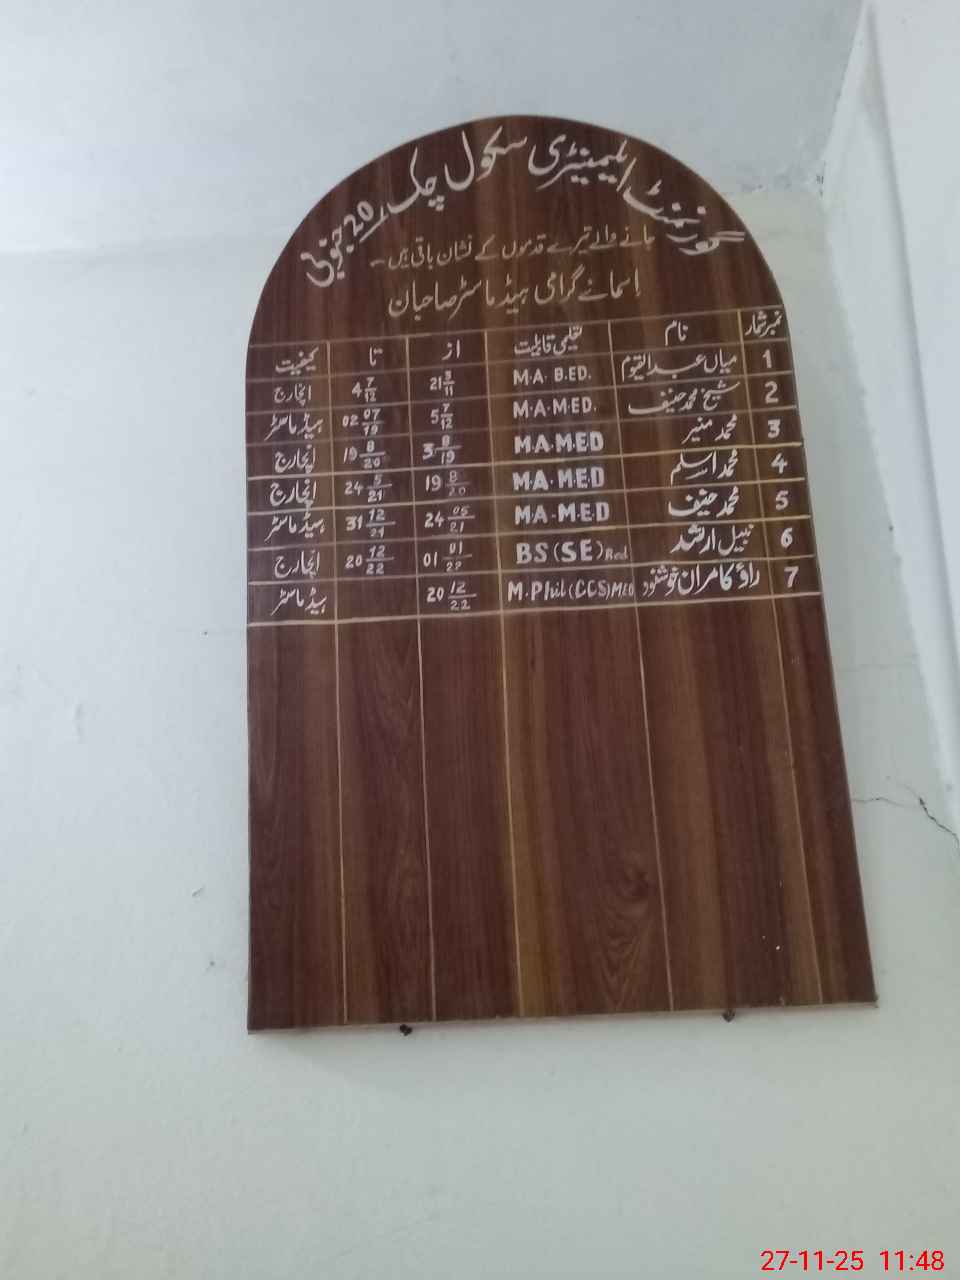 گورنمنٹ ایلیمینٹری سکول چک 20 جنوبی
جانے والے تیرے قدموں کے نشان باقی ہیں
اسمائے گرامی ہیڈ ماسٹر صاحبان
نمبر شمار نام تعلیمی قابلیت از تا کیفیت
1 میاں عبدالقیوم M.A. B.ED. 21 3/11 4 7/12 انچارج
2 شیخ محمد حنیف M.A.M.ED. 5 7/12 02 07/19 ہیڈ ماسٹر
3 محمد منیر M.A.M.ED 3 8/19 19 8/20 انچارج
4 محمد اسلم M.A.M.ED 19 8/20 24 5/21 انچارج
5 محمد حنیف M.A.M.ED 24 05/21 31 12/21 ہیڈ ماسٹر
6 نبیل ارشد BS (SE) 01 01/22 20 12/22 انچارج
7 راؤ کامران خوشنود M.Phil (CCS) MED 20 12/22 ہیڈ ماسٹر
27-11-25 11:48